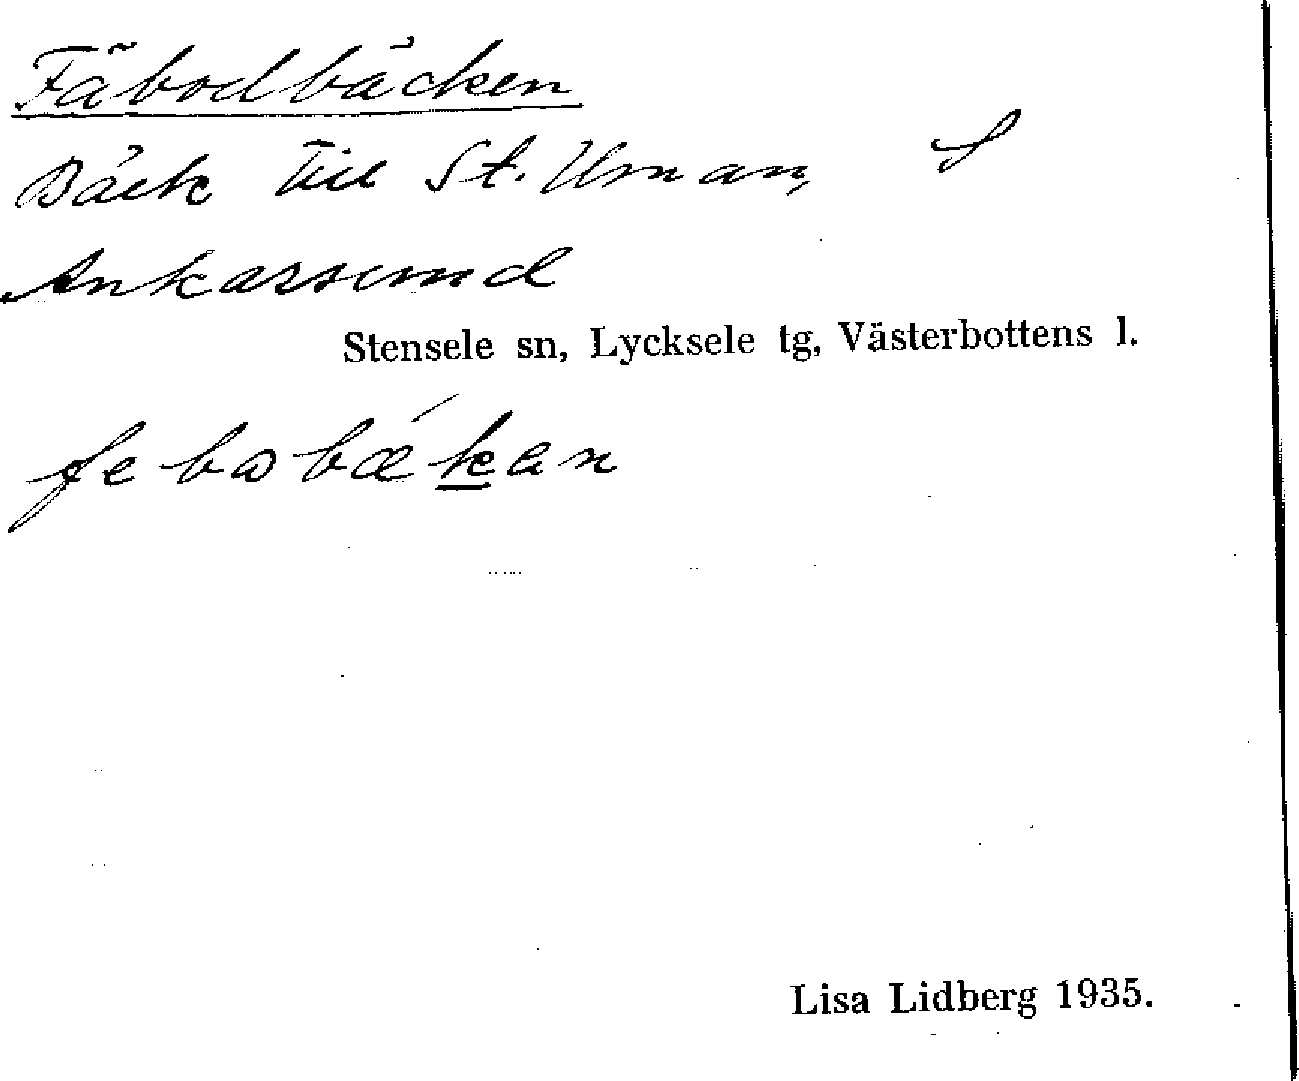 Fäbodbäcken
Bäck till St. Uman,
Ankarsund
Stensele sn, Lycksele tg, Västerbottens l.
febobækan
Lisa Lidberg 1935.